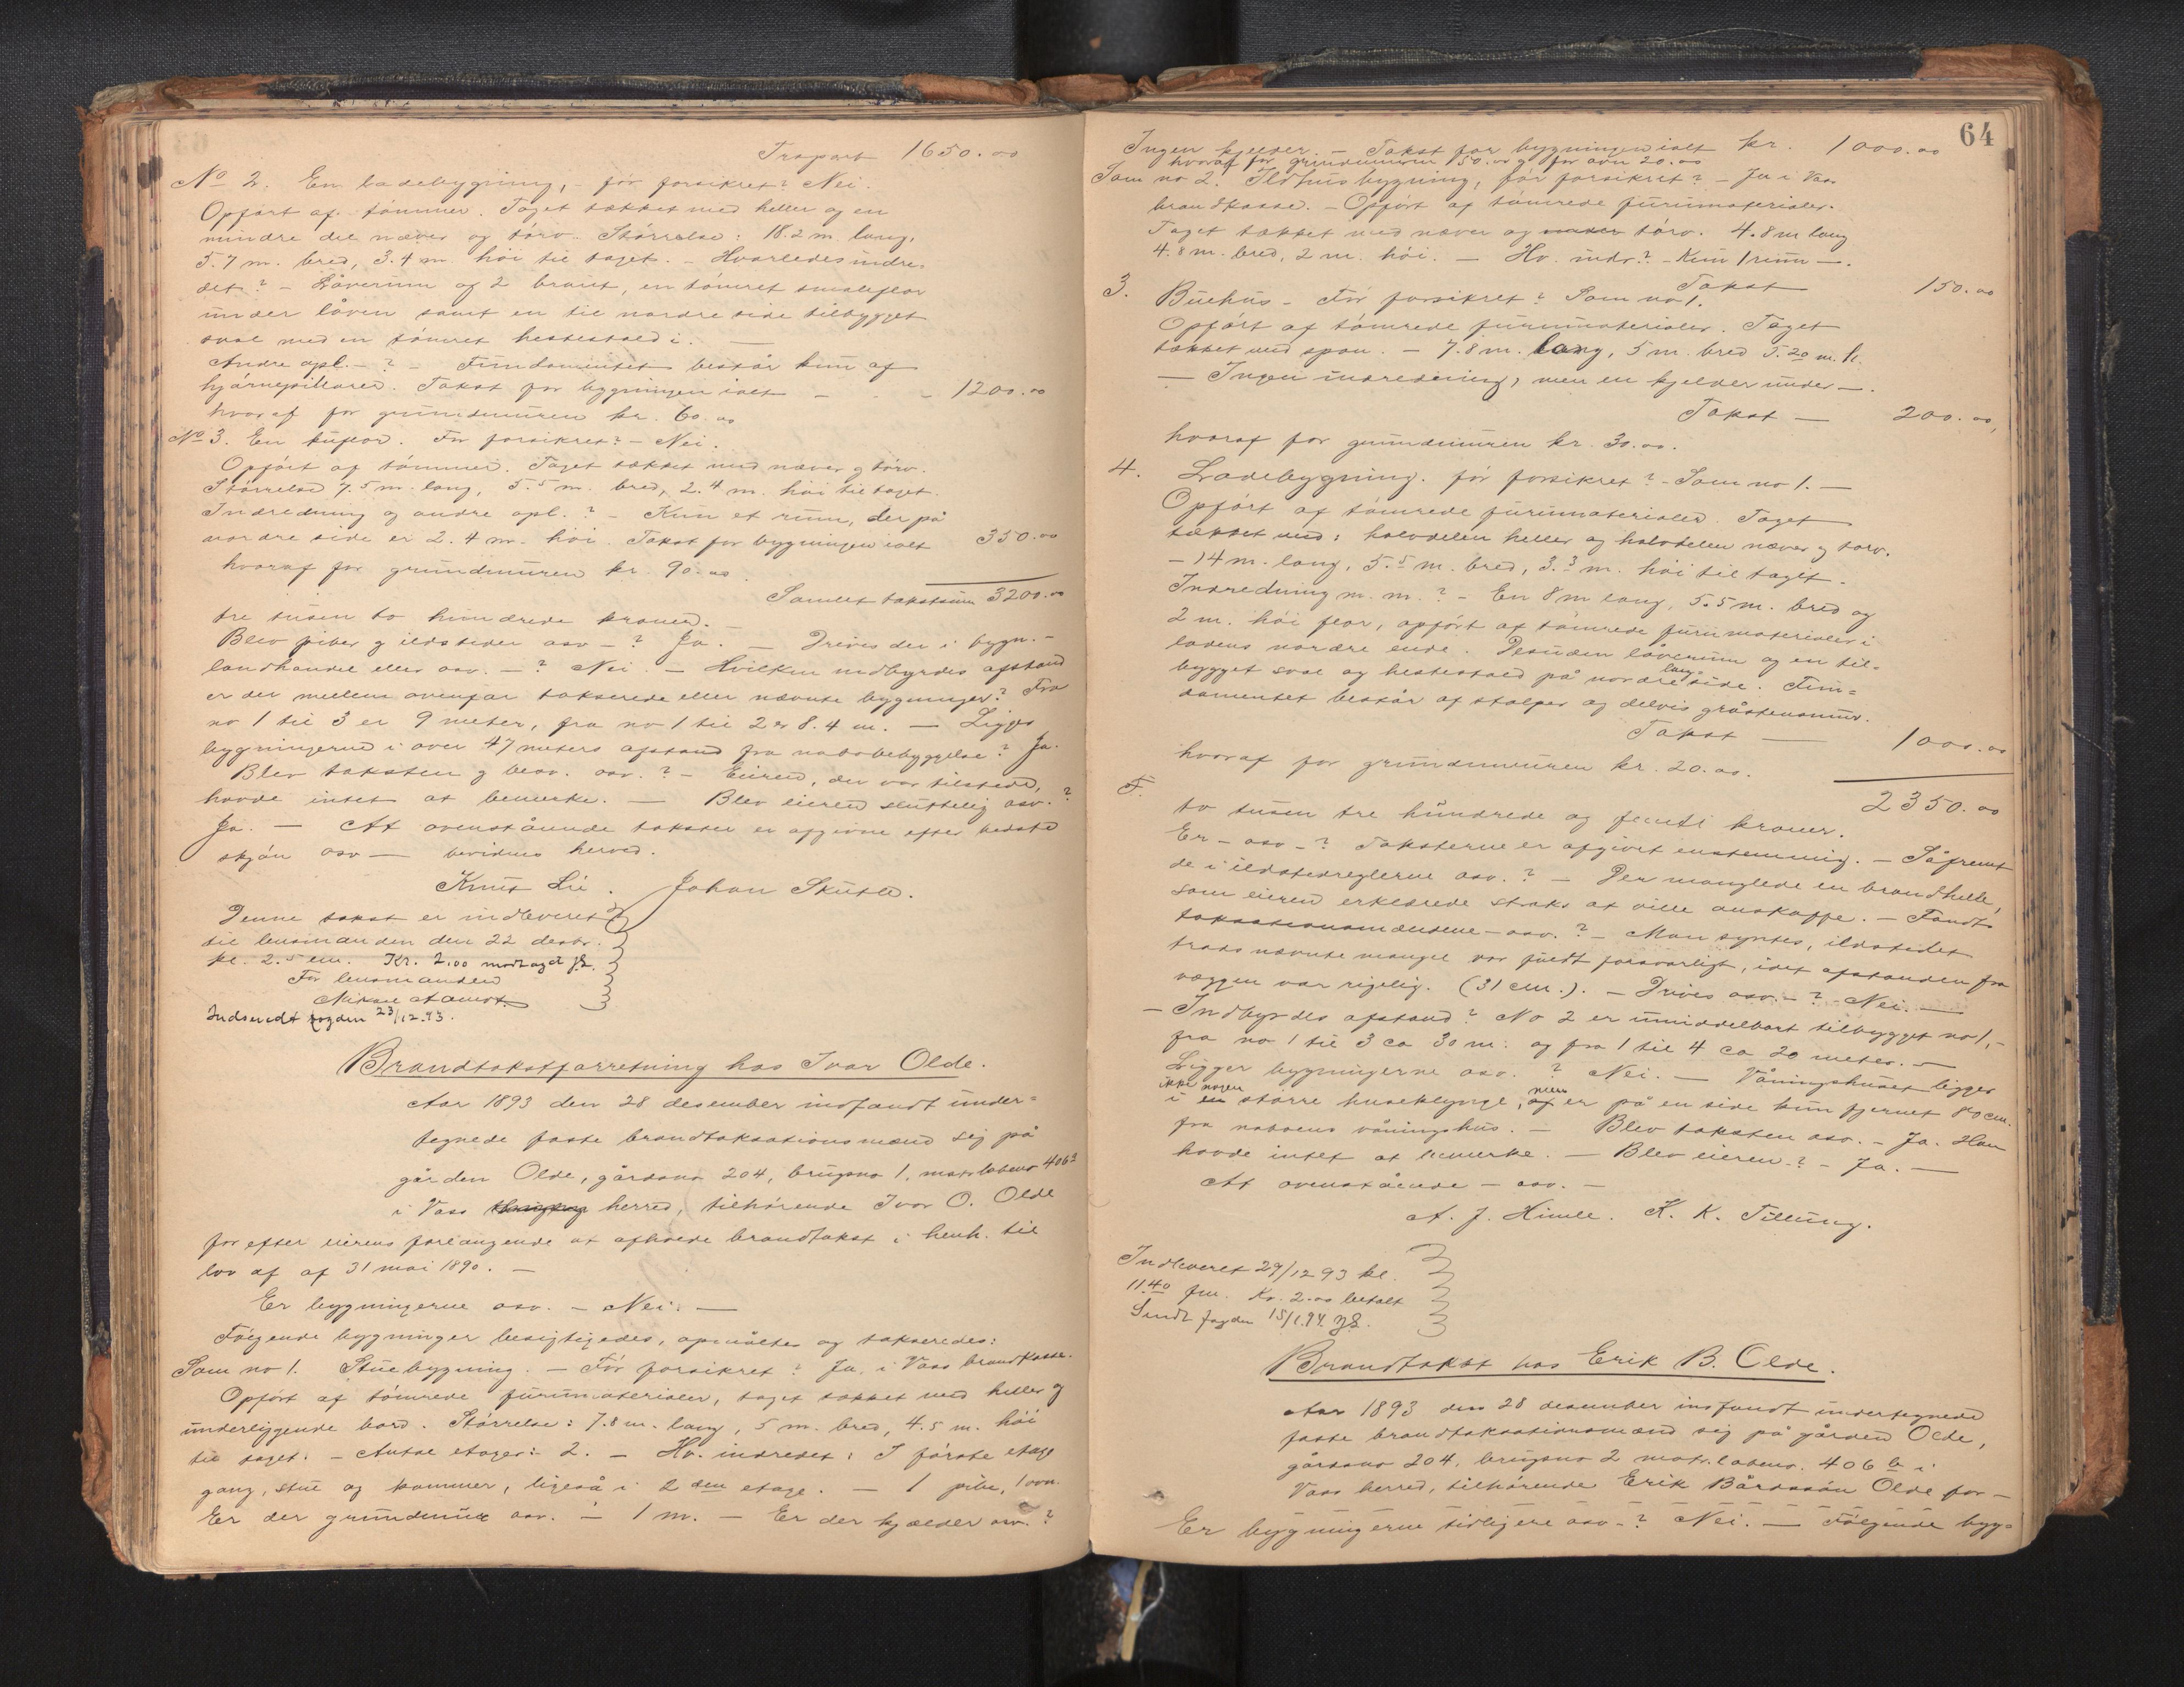 Trsport 1650.00
No 2. En ladebygning, - før forsikret? Nei.
Opført af tømmer. Taget tækket med heller og en
mindre del næver og törv. Størrelse: 18.2 m. lang,
5.7 m. bred, 3.4 m. høi til taget. - Hvorledes indre-
det? - Låverum og 2 , en tømret smaleflor
under låven samt en til nordre side tilbygget
sval med en tømret hestestald i. -
Andre opl. - ? - Fundamentet består kun af
hjørnepillarer. Takst for bygningen ialt - - - 1200.00
hvoraf for grundmuren kr. 60.00
No 3. En kuflor. Før forsikret? - Nei.
Opført af tømmer. Taget tækket med næver og törv.
Størrelse 7.5 m. lang, 5.5 m. bred, 2.4 m. høi til taget.
Indredning og andre opl.? - Kun et rum, der på
nordre side er 2.4 m. høi. Takst for bygningen ialt 350.00
hvoraf for grundmuren kr. 90.00.
Samlet takstsum 3200.00
tre tusen to hundrede kroner. -
Blev piber og ildsteder osv - ? Ja. - Drives der i bygn. -
landhandel eller osv. - ? Nei - Hvilken indbyrdes afstand
er der mellem ovenfor takserede eller nævnte bygninger? Fra
no 1 til 3 er 9 meter, fra no 1 til 2 er 8.4 m. - Ligger
bygningerne i over 47 meters afstand fra nabobebyggelse? Ja.
Blev taksten og besv. osv.? - Eieren, der var tilstede,
havde intet at bemerke. - Blev eieren sluttelig osv.?
Ja. - At ovenstående takster er afgivne efter bedste
skjøn osv - bevidnes herved.
Knut Lie. Johan Skutle.
Denne takst er indleveret
til lensmanden den 22 desbr.
kl. 2.5 em. Kr. 2.00 modtaget
For lensmanden
Indsendt fogden 23/12.93.
Brandtakstforretning hos Ivar Olde.
Aar 1893 den 28 desember indfandt under-
tegnede faste brandtaksationsmænd sig på
gården Olde, gårdsno 204, brugsno 1, matr.løbeno 406a
i Vass herred, tilhørende Ivar O. Olde
for efter eierens forlangende at afholde brandtakst i henh. til
lov af af 31 mai 1890. -
Er bygningerne osv. - Nei. -
Følgende bygninger besigtigedes, opmåltes og takseredes:
Som no 1. Stuebygning. - Før forsikret? Ja, i Vass brandkasse.
Opført af tømrede furumaterialer, taget tækket med heller og
underliggende bord. Størrelse: 7.8 m. lang, 5 m. bred, 4.5 m. høi
til taget. - Antal etager: 2. - Hv. indredet: I første etage
gang, stue og kammer, ligeså i 2den etage. - 1 pibe, 1 ovn.
Er der grundmur osv. - 1 m. - Er der kjælder osv.?
64
Ingen kjelder. - Takst for bygningen ialt kr. 1000.00
hvoraf for grundmuren 50.00 og for ovn 20.00
Som no 2. Ildhusbygning, før forsikret? - Ja i Vass
brandkasse. - Opført af tømrede furumaterialer.
Taget tækket med næver og under törv. 4.8 m lang
4.8 m. bred, 2 m. høi. - Hv. indr.? - Kun 1 rum -.
Takst 150.00
3. Buehus - Før forsikret? Som no 1.
Opført af tømrede furumaterialer. Taget
tækket med spon. - 7.8 m. lang, 5 m. bred 5.20 m. h.
- Ingen indredning, men en kjelder under -.
Takst - 200.00,
hvoraf for grundmuren kr. 30.00.
4. Ladebygning. før forsikret? - Som no 1. -
Opført af tømrede furumaterialer. Taget
tækket med: halvdelen heller og halvdelen næver og torv.
- 14 m. lang, 5.5 m. bred, 3.3 m. høi til taget.
Indredning m. m.? - En 8 m lang, 5.5 m. bred og
2 m. høi flor, opført af tømrede furumaterialer i
ladens nordre ende. Desuden låverum og en til-
bygget sval og hestestald på nordre langside. Fun-
damentet består af stolper og delvis gråstensmur.
Takst - 1000.00
hvoraf for grundmuren kr. 20.00.
2350.00
to tusen tre hundrede og femti kroner.
Er - osv - ? Taksterne er afgivet enstemmig. - Såfremt
de i ildstedreglerne osv.? - Der manglede en brandhelle,
som eieren erklærede straks at ville anskaffe. - Fandt
taksationsmændene - osv.? - Man syntes, ildstedet
trods nævnte mangel var fuldt forsvarligt, idet afstanden fra
væggen var rigelig. (31 cm.). - Drives osv. - ? - Nei. -
- Indbyrdes afstand? No 2 er umiddelbart tilbygget no 1, -
fra no 1 til 3 ca 30 m. og fra 1 til 4 ca 20 meter. -
Ligger bygningerne osv. ? Nei. - Våningshuset ligger
ikke nogen men
i en større huseklynge, af er på en side kun fjernet 80 cm.
fra naboens våningshus. - Blev taksten osv. - Ja. Han
havde intet at bemerke. - Blev eieren? - Ja. -
At ovenstående - osv. -
A. J. Himle. K. K. Tillung.
Indleveret 29/12 93 kl.
11.40 fm. Kr. 2.00 betalt
Sendt fogden 15/1.94.
Brandtakst hos Erik B. Olde.
Aar 1893 den 28 desember indfandt undertegnede
faste brandtaksationsmænd sig på gården Olde,
gårdsno 204, brugsno 2 matr.løbeno. 406 b i
Vass herred, tilhørende Erik Bårdssøn Olde for -
Er bygningerne tidligere osv - ? Nei. - Følgende byg-